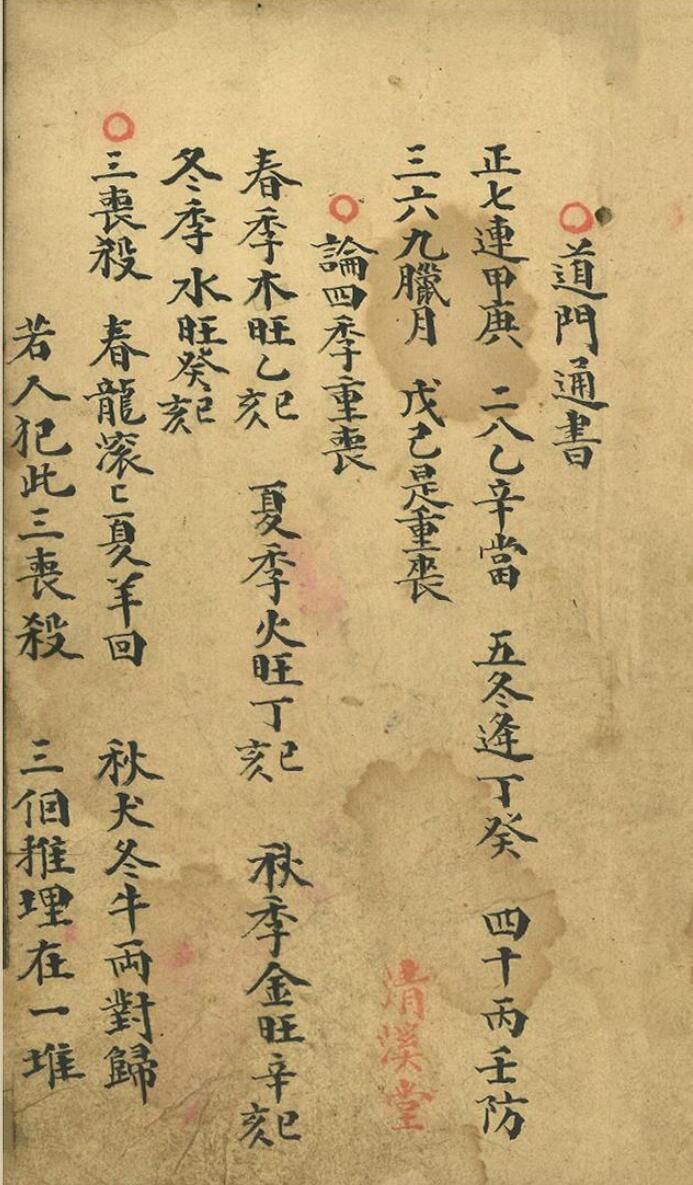 道門通書
正七連甲庚 二八乙辛當 五冬逄丁癸 四十丙壬防
三六九臘月 戊己是重喪
清溪堂
論四季重喪
春季木旺乙巳亥 夏季火旺丁巳亥 秋季金旺辛巳亥
冬季水旺癸巳亥
三喪殺 春龍滚匕夏羊回 秋犬冬牛両對歸
若人犯此三喪殺 三個推埋在一堆